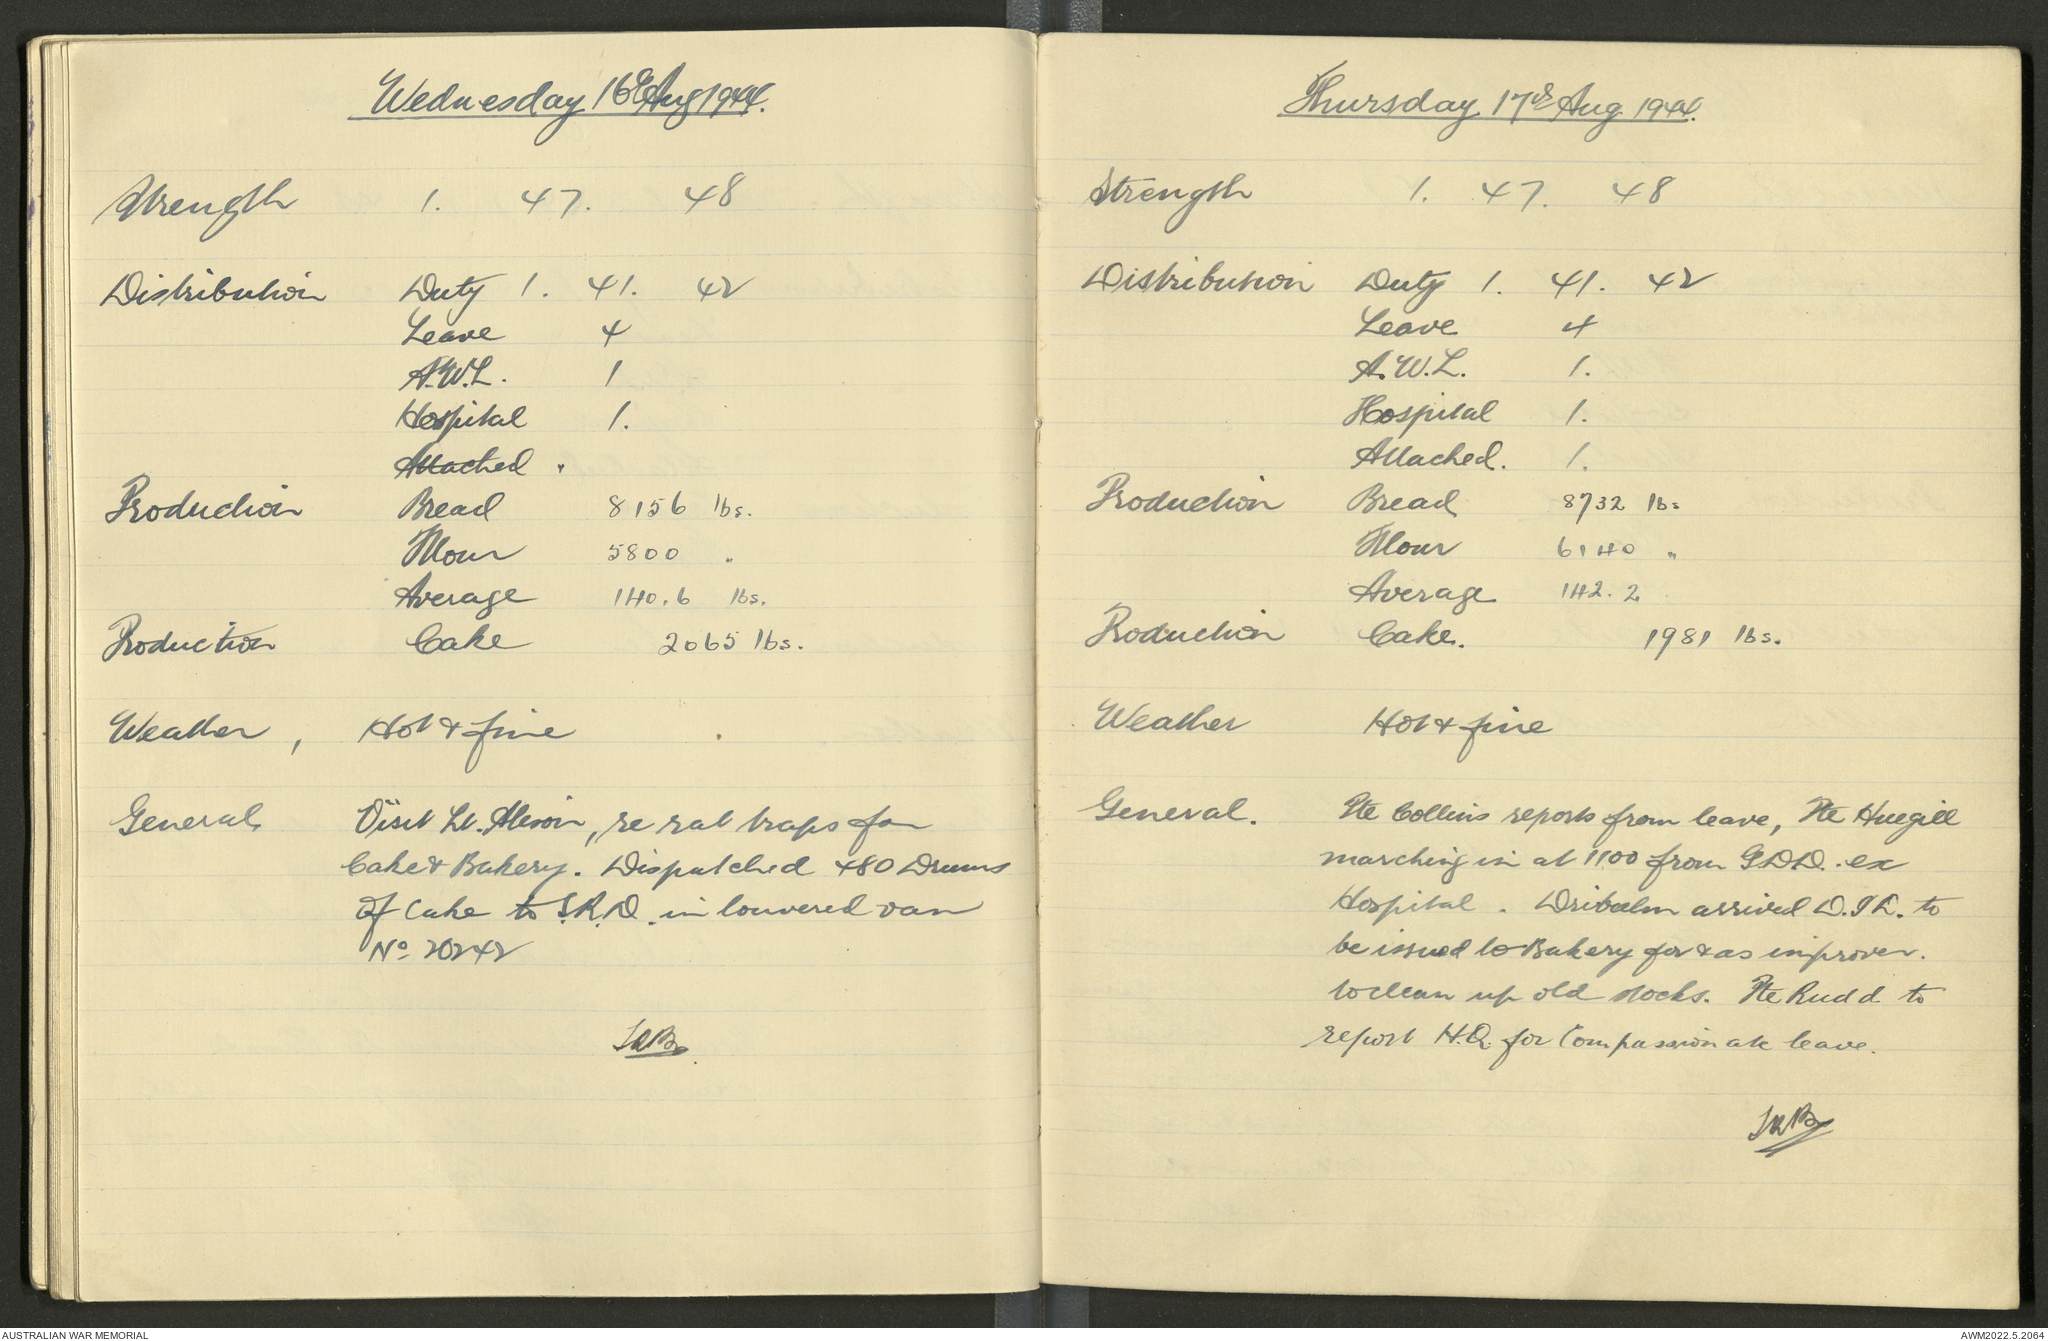 Wednesday 16th Aug 1944.
Strength 1. 47. 48
Distribution Duty 1. 41. 42
Leave 4
A.W.L. 1
Hospital 1.
Attached "
Production Bread 8156 lbs.
Flour 5800 "
Average 140.6 lbs.
Production Cake 2065 lbs.
Weather, Hot & fine
General Visit Lt. , re rat traps for
Cake & Bakery. Dispatched 480 Drums
of Cake to S.R.D. in louvered van
No 20242
Thursday 17th Aug. 1944.
Strength 1. 47. 48
Distribution Duty 1. 41. 42
Leave 4
A.W.L. 1.
Hospital 1.
Attached. 1.
Production Bread 8732 lbs
Flour 6140 "
Average 142.2
Production Cake. 1981 lbs.
Weather Hot & fine
General. Pte Collins reports from leave, Pte Huegill
marching in at 1100 from G.D.D. ex
Hospital. arrived to
be issued to Bakery for & as improver.
to clean up old stocks. Pte Rudd to
report H.Q. for Compassionate leave.
AUSTRALIAN WAR MEMORIAL
AWM2022.5.2064